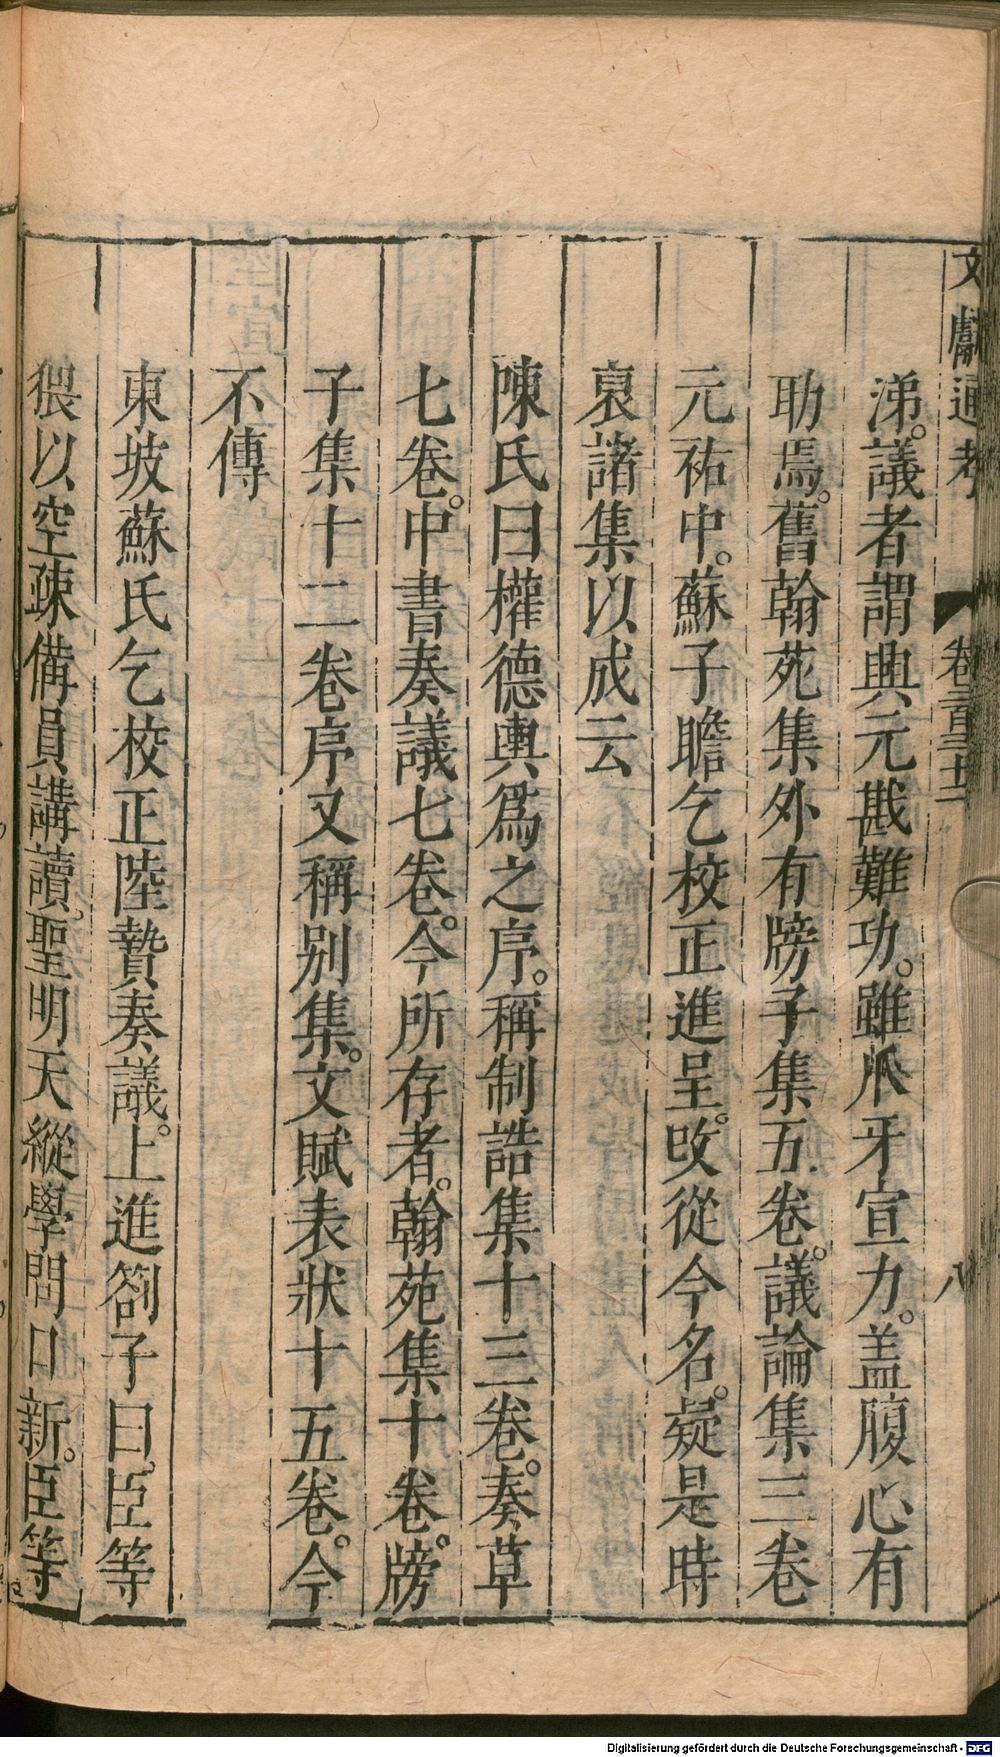 文獻通考 卷二百三十二 八
涕。議者謂興元戡難功。雖爪牙宣力。盖腹心有
助焉。舊翰苑集外有牓子集五卷。議論集三卷
元祐中。蘇子瞻乞校正進呈。攺從今名。疑是時
裒諸集以成云
陳氏曰權德輿爲之序。稱制誥集十三卷。奏草
七卷。中書奏議七卷。今所存者。翰苑集十卷。牓
子集十二卷序又稱别集。文賦表狀十五卷。今
不傳
東坡蘇氏乞校正陸贄奏議。上進劄子曰。臣等
猥以空疎備員講讀。聖明天縱學問日新。臣等
Digitalisierung gefördert durch die Deutsche Forschungsgemeinschaft - DFG